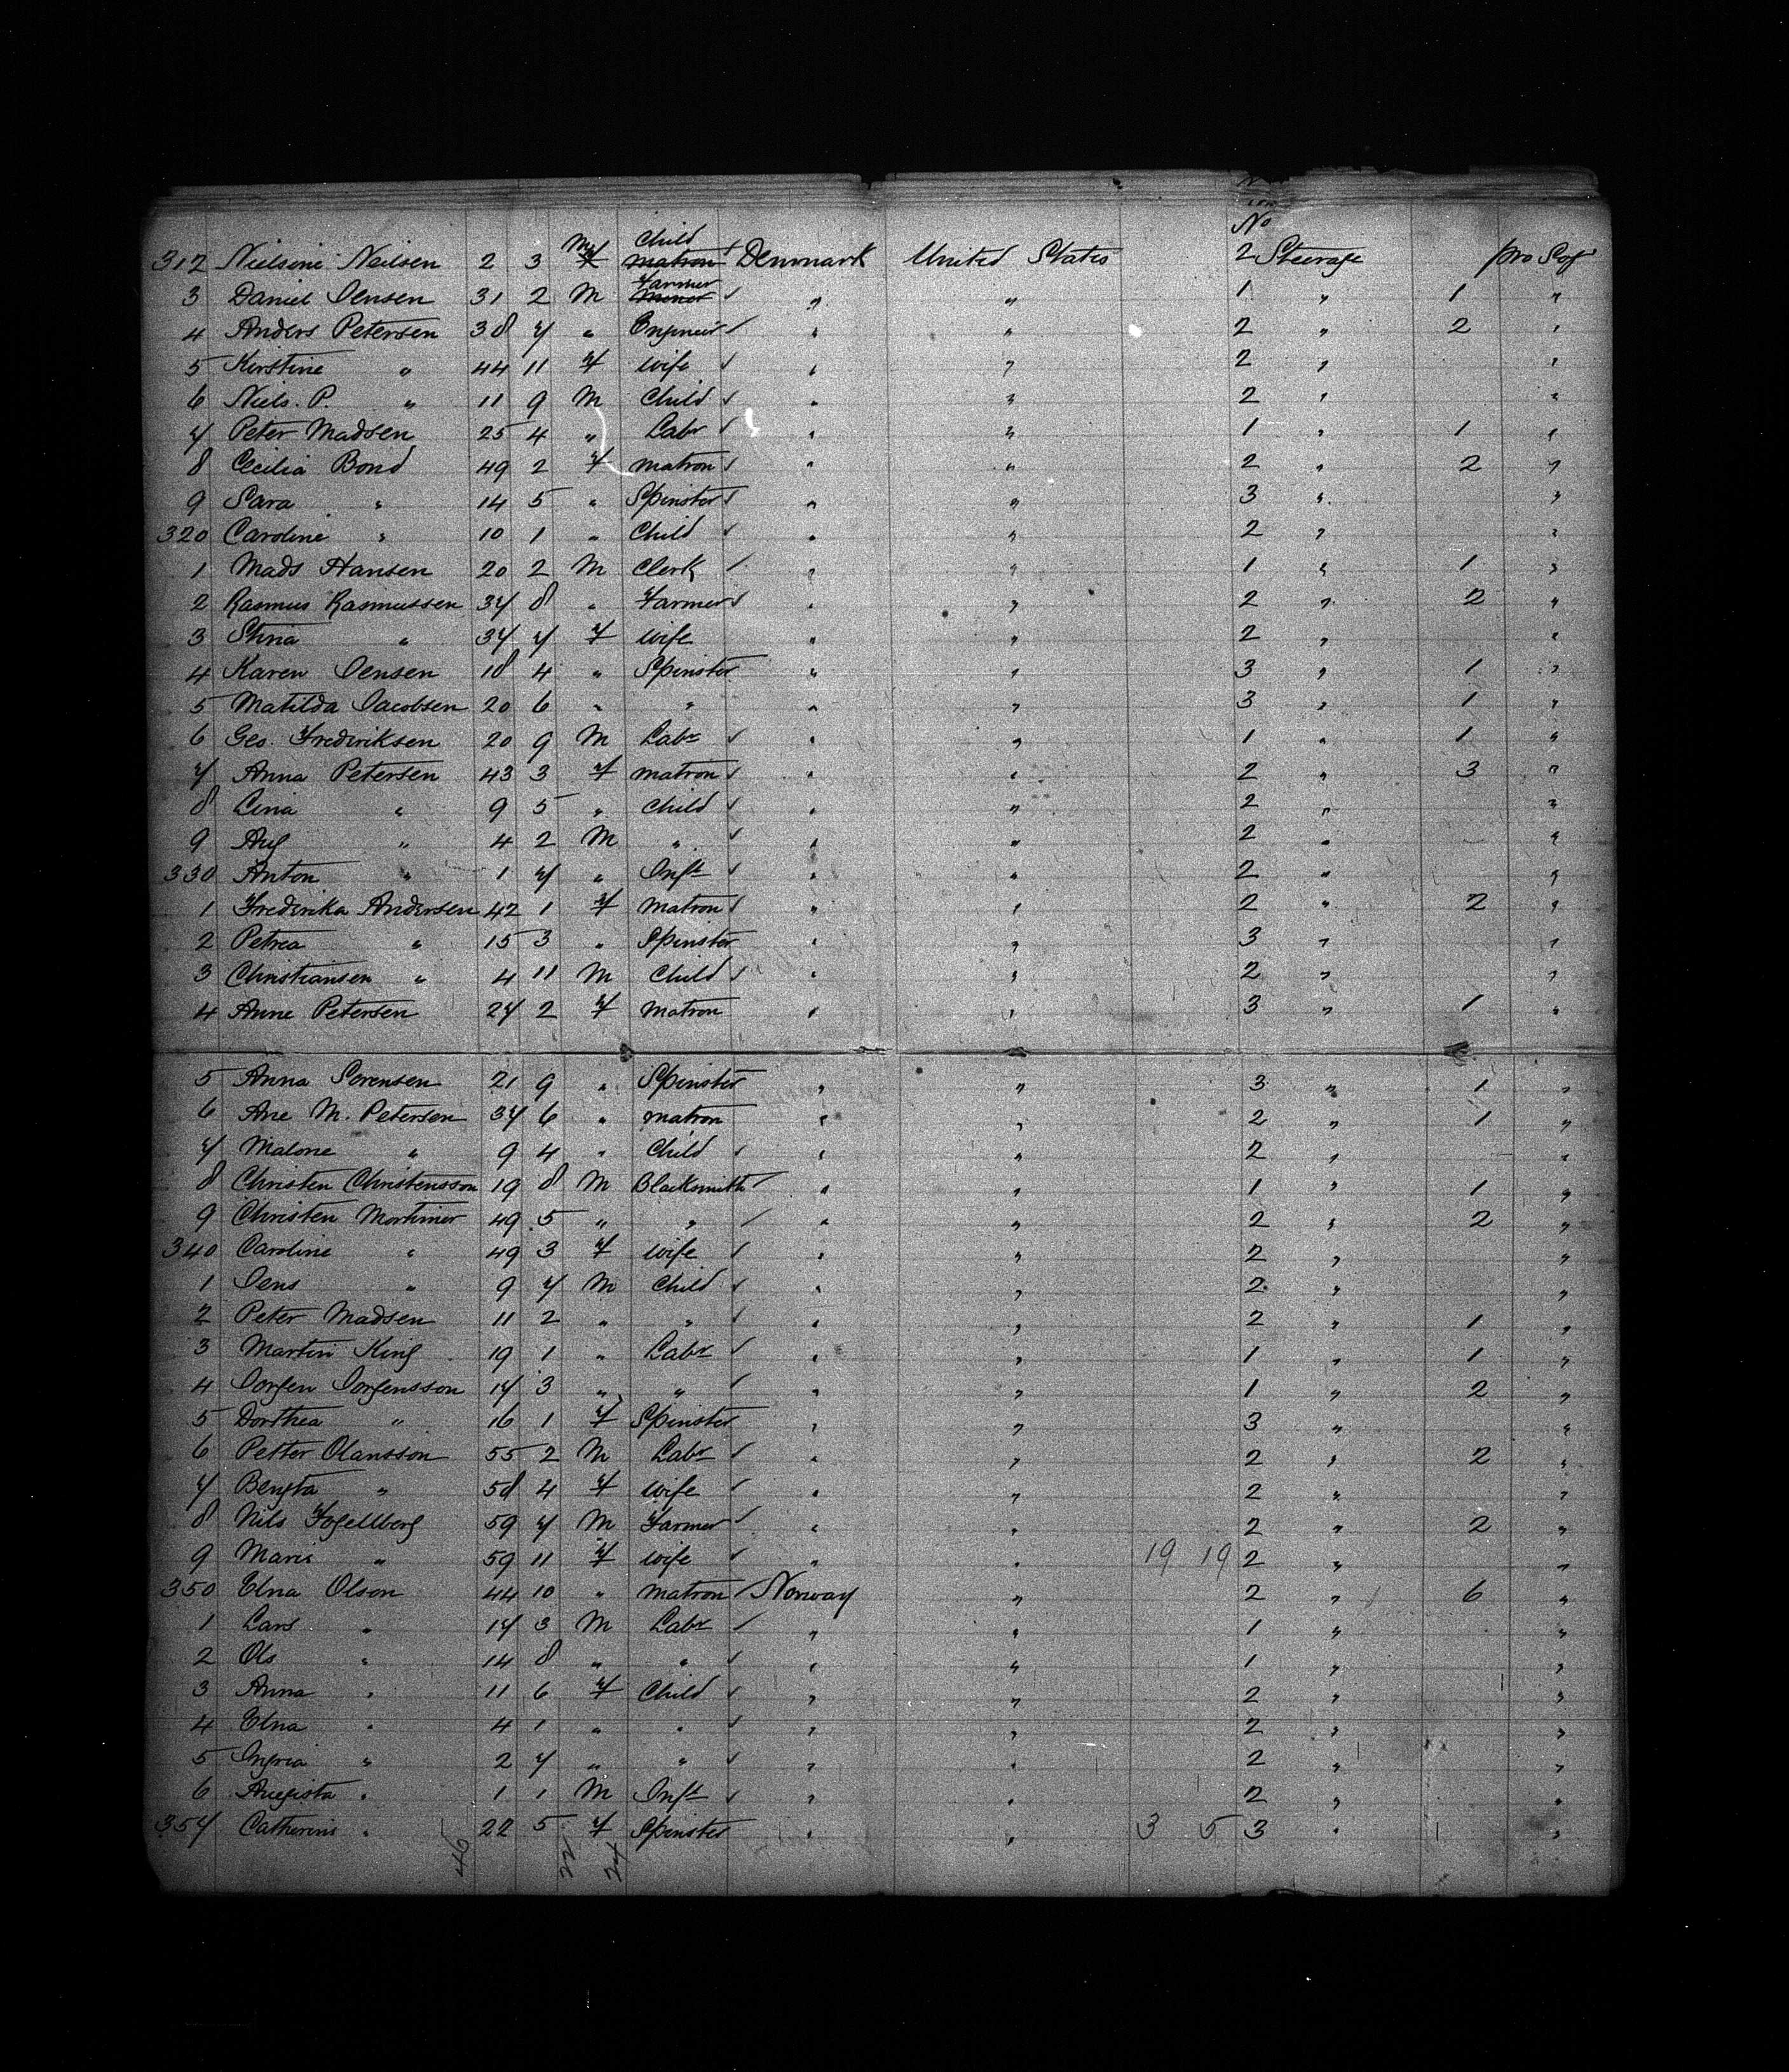 No
Child
312 Nielsine Neilsen 2 3 M matron Denmark United States 2 Steerage pro Slop
Farmer
3 Daniel Jensen 31 2 M Miner ✓ " " 1 " 1 "
4 Anders Petersen 38 7 " Engineer ✓ " " 2 " 2 "
5 Kirstine " 44 11 F wife ✓ " " 2 " "
6 Niels. P. " 11 9 M Child ✓ " " 2 " "
7 Peter Madsen 25 4 " Labr ✓ " " 1 " 1 "
8 Cecilia Bond 49 2 F matron ✓ " " 2 " 2 "
9 Sara " 14 5 " Spinster ✓ " " 3 " "
320 Caroline " 10 1 " Child ✓ " " 2 " "
1 Mads Hansen 20 2 M Clerk ✓ " " 1 " 1 "
2 Rasmus Rasmussen 37 8 " Farmer ✓ " " 2 " 2 "
3 Stina " 37 7 F wife " " 2 " "
4 Karen Jensen 18 4 " Spinster " " 3 " 1 "
5 Matilda Jacobsen 20 6 " " " " 3 " 1 "
6 Geo. Frederiksen 20 9 M Labr ✓ " " 1 " 1 "
7 Anna Petersen 43 3 F matron ✓ " " 2 " 3 "
8 Lina " 9 5 " Child ✓ " " 2 " "
9 Aug " 4 2 M " ✓ " " 2 " "
330 Anton " 1 7 " Inft ✓ " " 2 " "
1 Frederika Andersen 42 1 F matron ✓ " " 2 " 2 "
2 Petrea " 15 3 " Spinster " " 3 " "
3 Christiansen " 4 11 M Child ✓ " " 2 " "
4 Anne Petersen 27 2 F matron " " 3 " 1 "
5 Anna Sorensen 21 9 " Spinster " " 3 " 1 "
6 Ane M. Petersen 37 6 " matron " " 2 " 1 "
7 Malone " 9 4 " Child ✓ " " 2 " "
8 Christen Christensson 19 8 M Blacksmith ✓ " " 1 " 1 "
9 Christen Mortimer 49 5 " " ✓ " " 2 " 2 "
340 Caroline " 49 3 F wife ✓ " " 2 " "
1 Jens " 9 7 M Child ✓ " " 2 " "
2 Peter Madsen 11 2 " " ✓ " " 2 " 1 "
3 Martin King 19 1 " Labr ✓ " " 1 " 1 "
4 Jorgen Jorgensson 17 3 " " ✓ " " 1 " 2 "
5 Dorthea " 16 1 F Spinster " " 3 " "
6 Petter Olansson 55 2 M Labr ✓ " " 2 " 2 "
7 Bengta " 58 4 F wife ✓ " " 2 " "
8 Nils Fogellberg 59 7 M Farmer ✓ " " 2 " 2 "
9 Maris " 59 11 F wife ✓ " " 19 19 2 " "
350 Elna Olson 44 10 " matron ✓ Norway " 2 " 6 "
1 Lars " 17 3 M Labr ✓ " " 1 " "
2 Ole " 14 8 " " ✓ " " 1 " "
3 Anna " 11 6 F Child ✓ " " 2 " "
4 Elna " 4 1 " " ✓ " " 2 " "
5 Ingria " 2 7 " " ✓ " " 2 " "
6 Augista " 1 1 M Inft ✓ " " 2 " "
357 Catherine " 22 5 F Spinster " " 3 5 3 " "
46 22 24